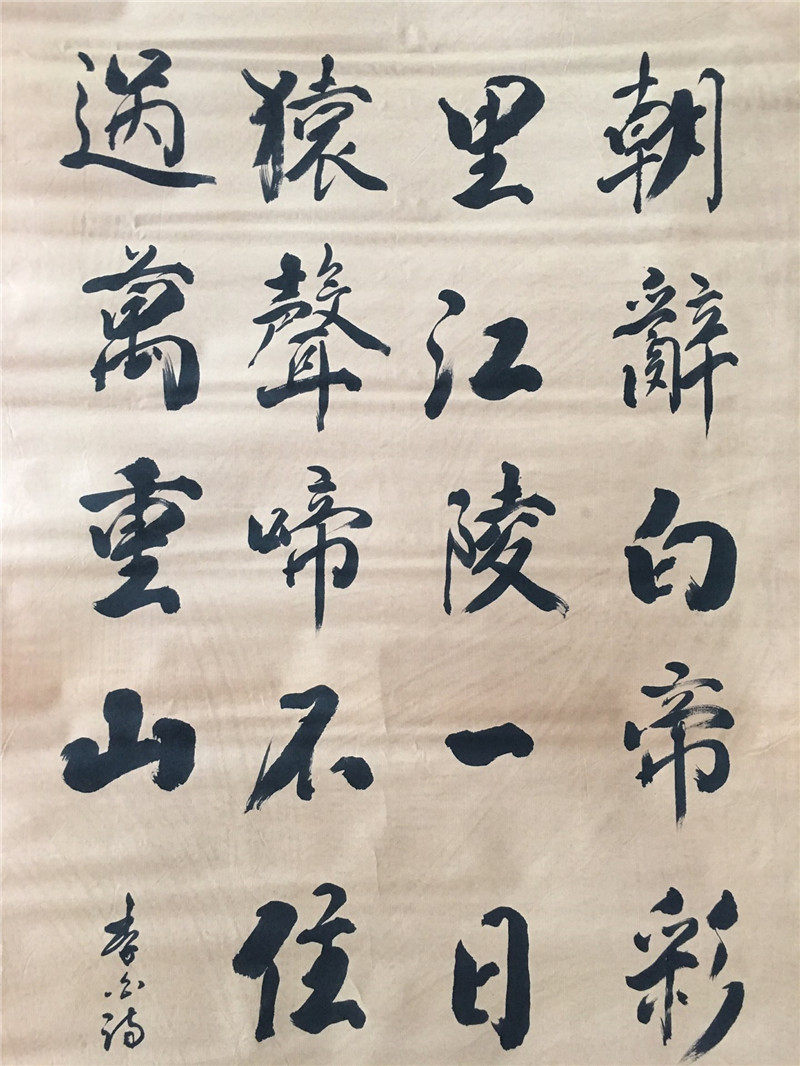 朝辭白帝彩
里江陵一日
猿聲啼不住
過萬重山
李白詩